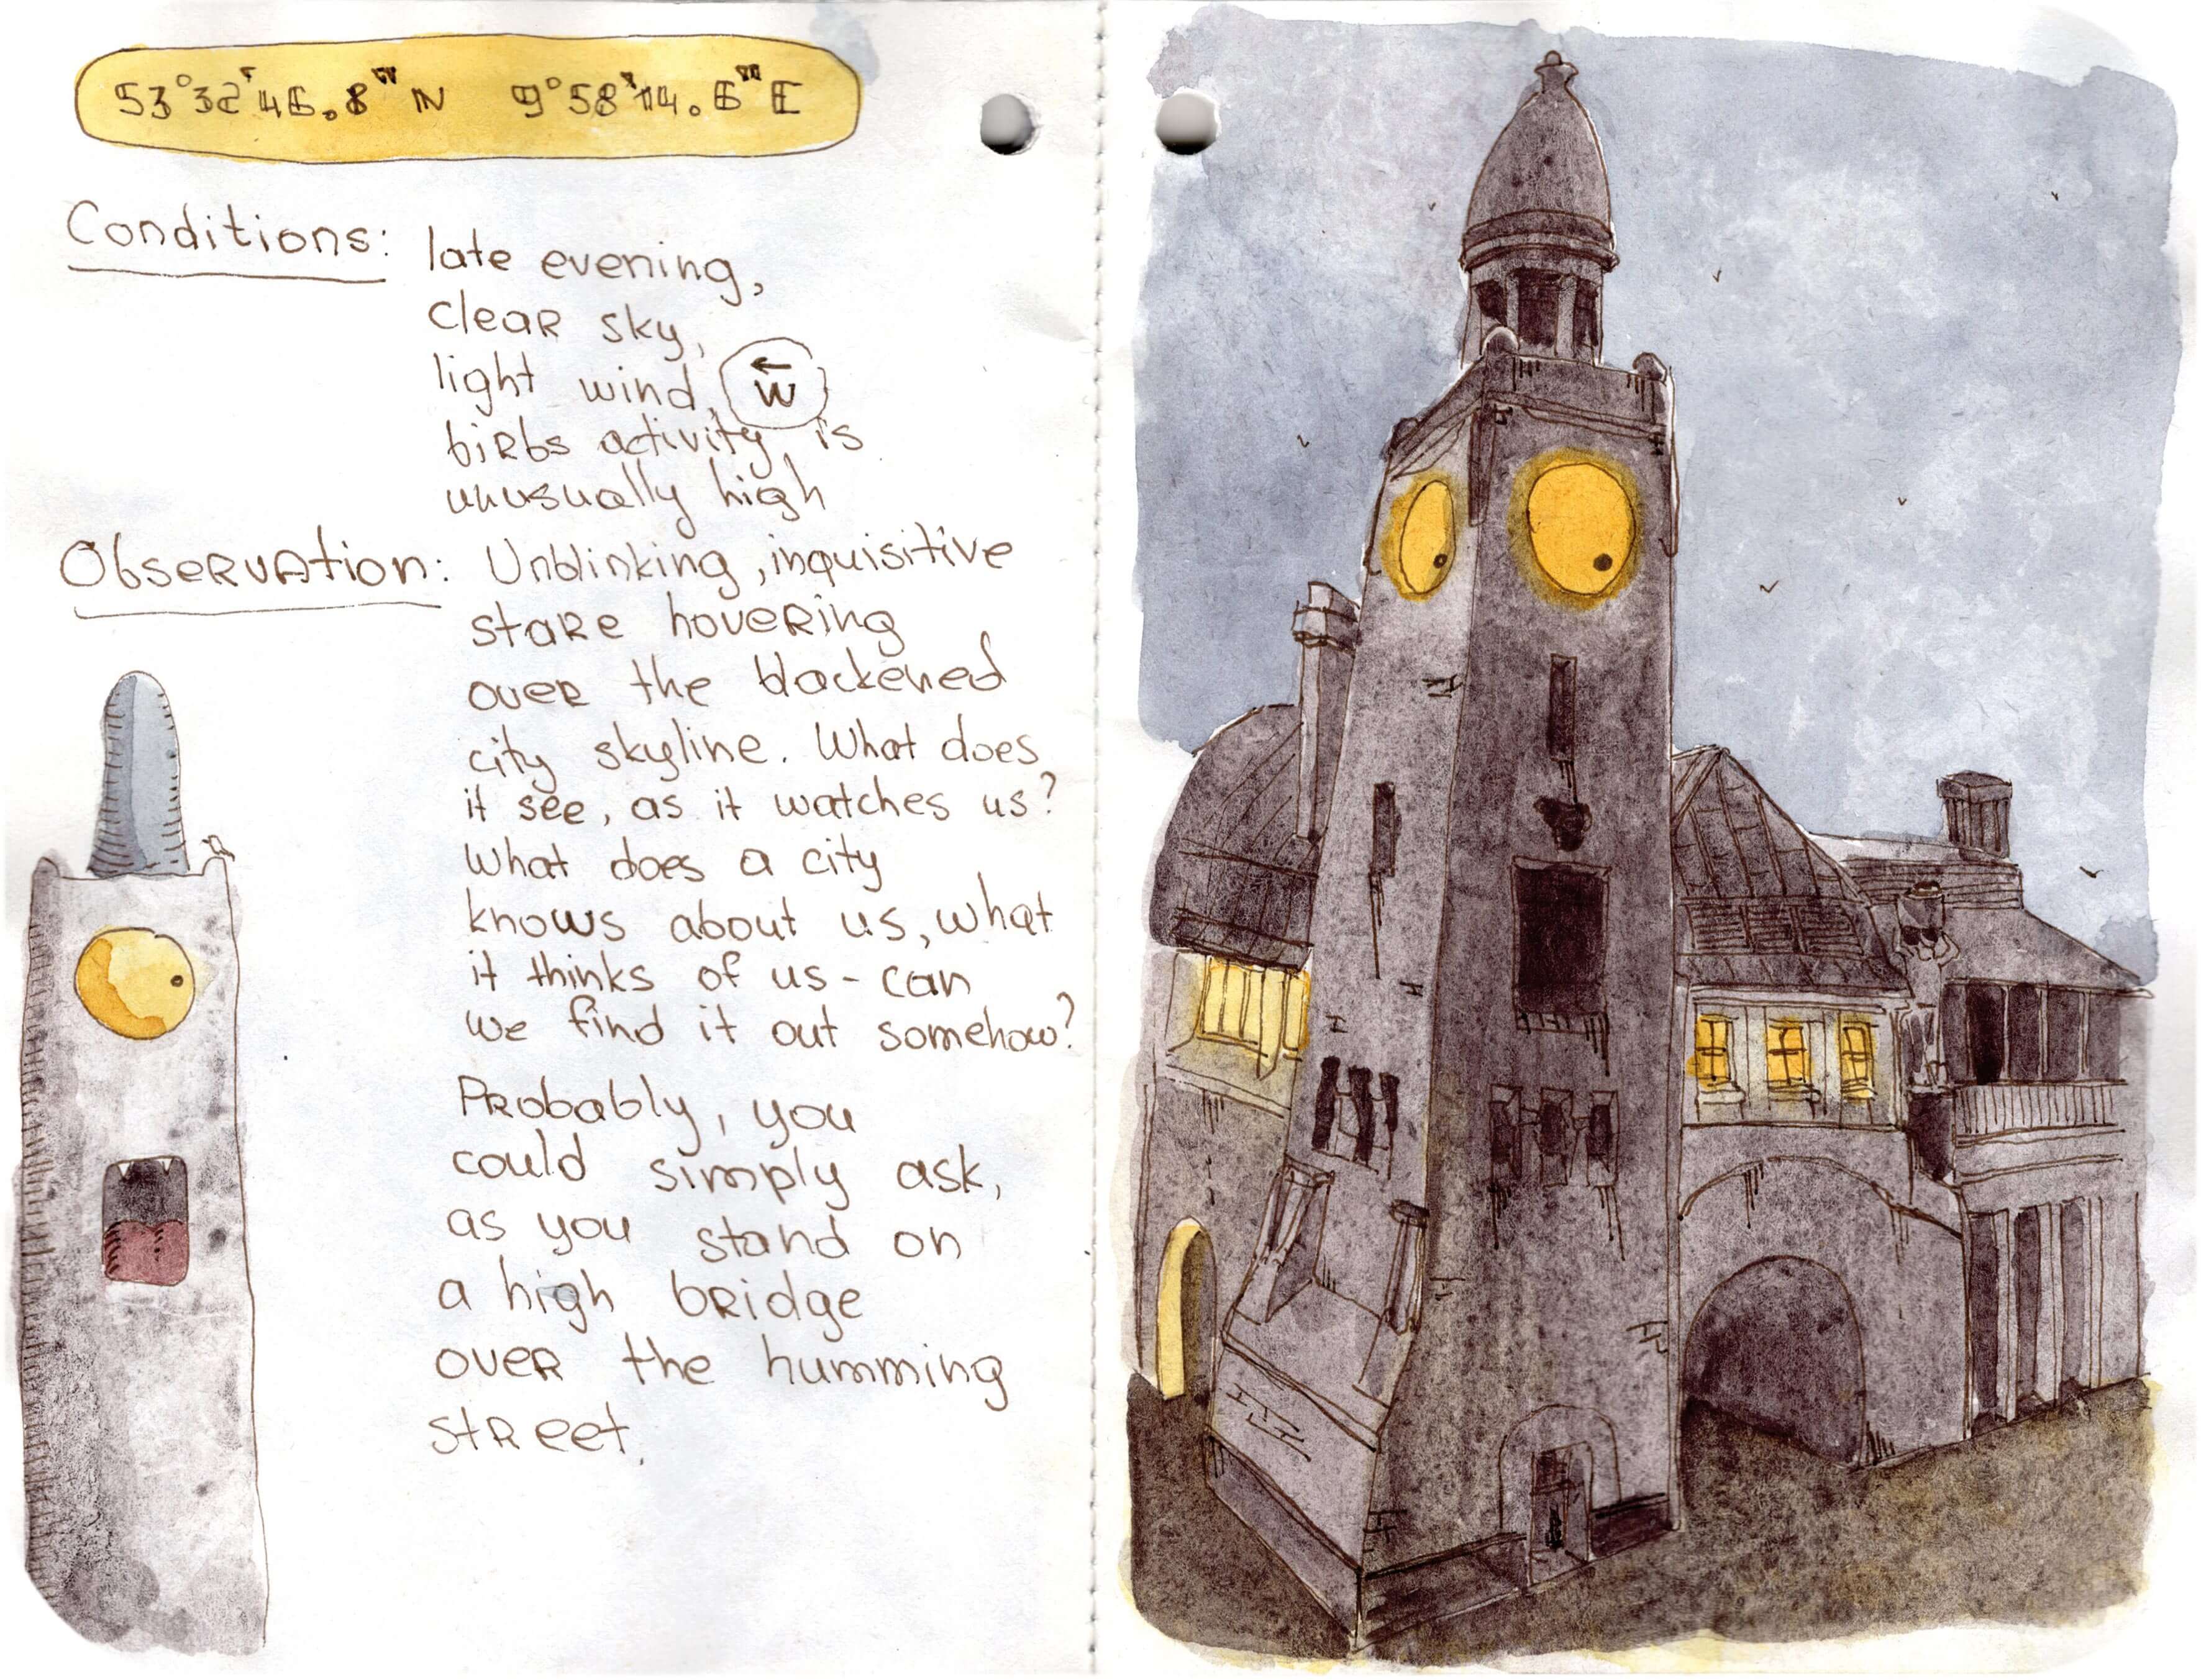 53°32'46.8" N 9°58'14.6" E
Conditions: late evening,
clear sky,
light wind, W
birbs activity is
unusually high
Observation: Unblinking, inquisitive
stare hovering
over the blackened
city skyline. What does
it see, as it watches us?
What does a city
knows about us, what
it thinks of us - can
we find it out somehow?
Probably, you
could simply ask,
as you stand on
a high bridge
over the humming
street.